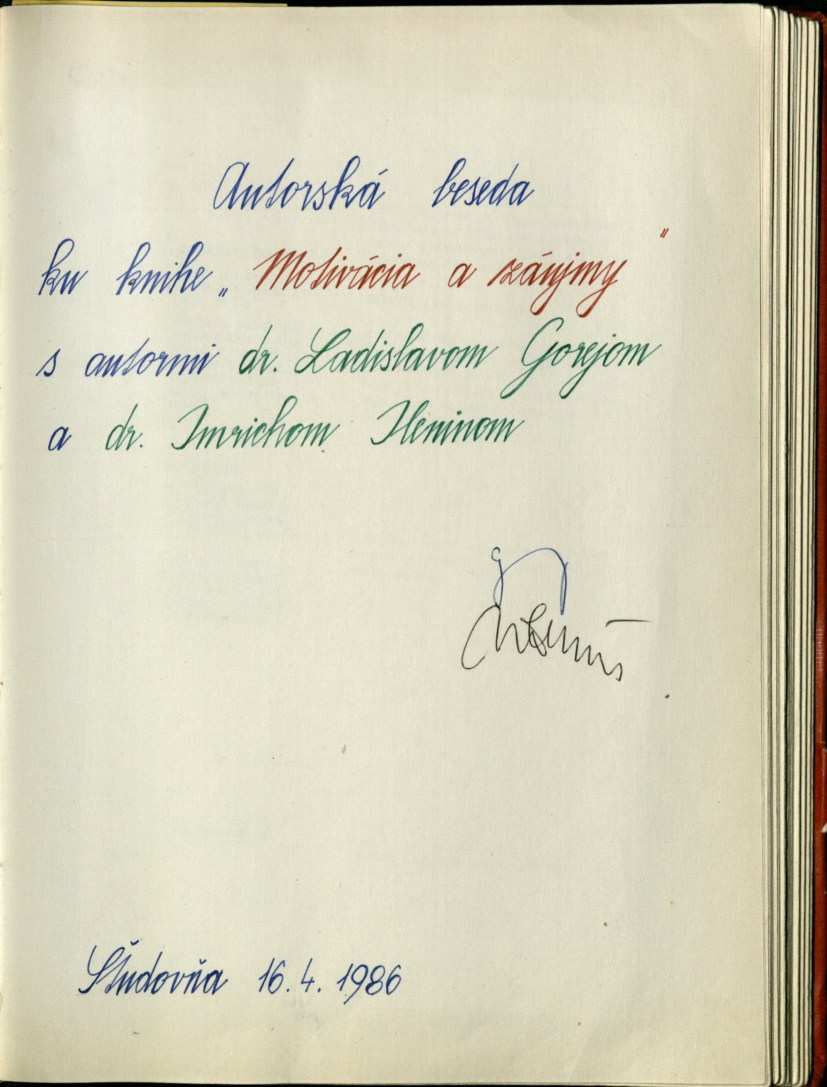 Autorská beseda
ku knihe „Motivácia a záujmy"
s autormi dr. Ladislavom Gorejom
a dr. Imrichom Ileninom
Študovňa 16.4.1986